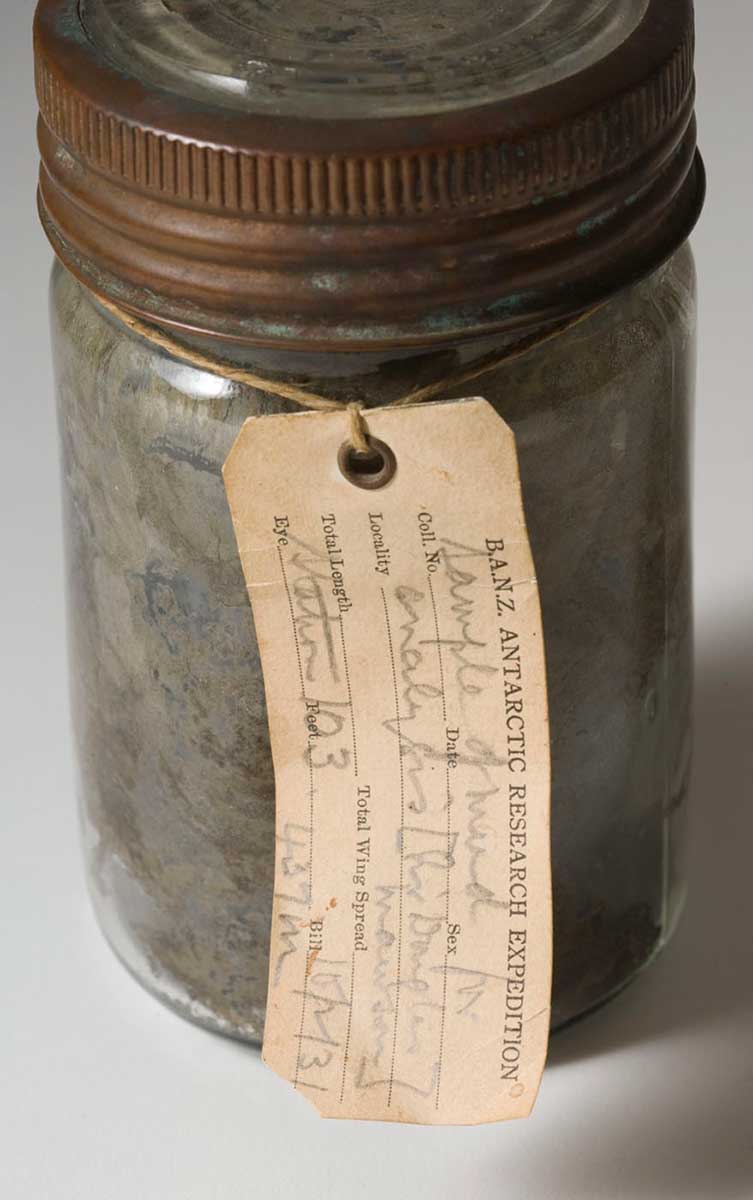 B.A.N.Z. ANTARCTIC RESEARCH EXPEDITION
Coll. No. Date Sex
Sample of mud for
Locality
analysis [Sir Douglas
Mawson]
Total Length Total Wing Spread
Eye Feet Bill
Station 103. 437m